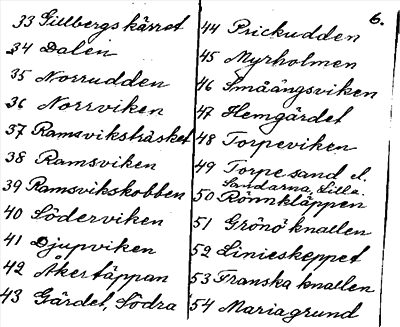 6.
33 Gillbergs kärret
34 Dalen
35 Norrudden
36 Norrviken
37 Ramsviksträsket
38 Ramsviken
39 Ramsvikskobben
40 Söderviken
41 Djupviken
42 Åkertäppan
43 Gärdet, Södra
44 Prickudden
45 Myrholmen
46 Småängsviken
47 Hemgärdet
48 Torpeviken
49 Torpe sand el.
Sandarna, Lilla.
50 Rönnkläppen
51 Grönö knallen
52 Linieskeppet
53 Franska knallen
54 Mariagrund